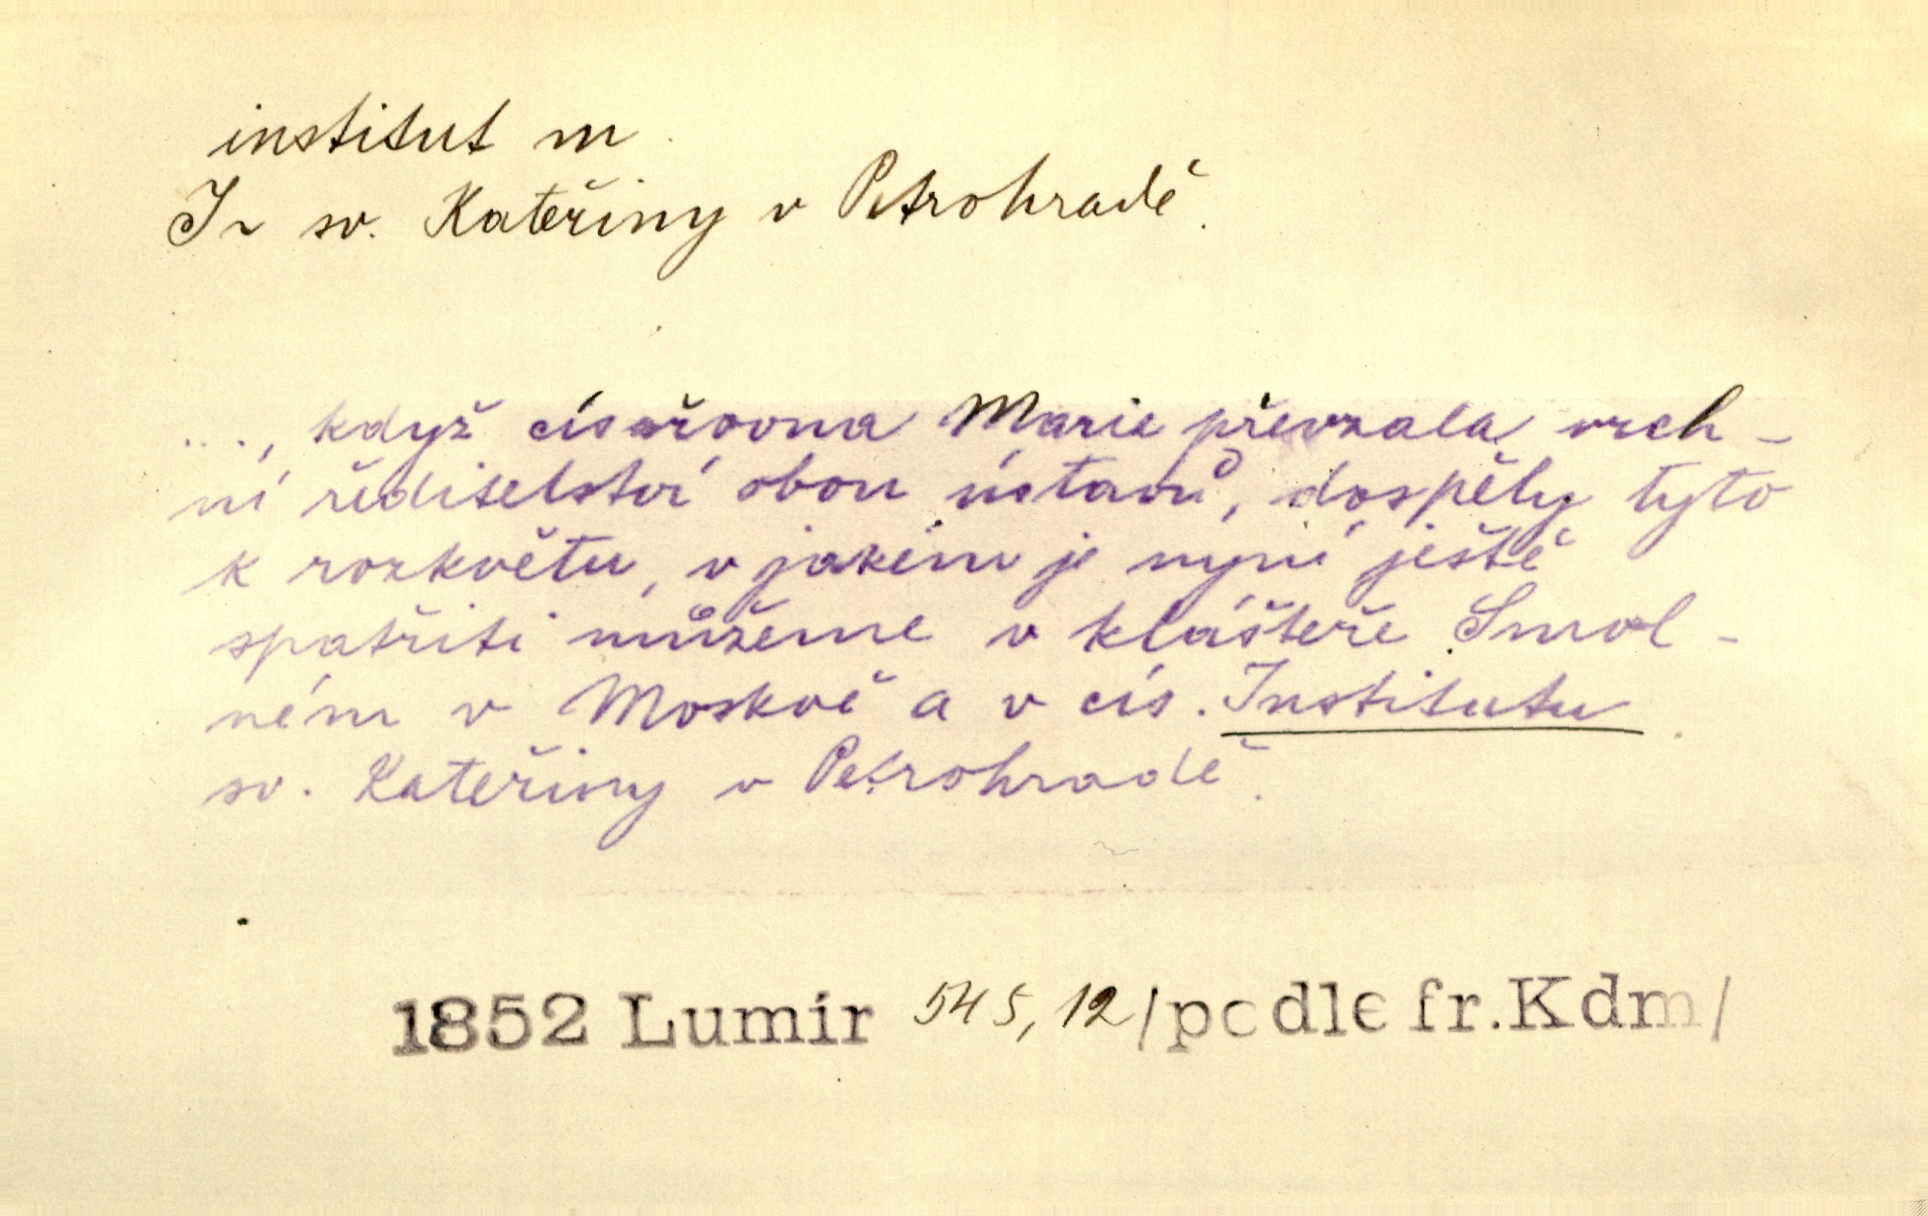 institut m
I~ sv. Kateřiny v Petrohradě.
..., když císařovna Marie převzala vrch-
ní ředitelství obou ústavů, dospěly tyto
k rozkvětu, v jakém je nyní ještě
spatřiti můžeme v klášteře Smol-
ném v Moskvě a v cís. Institutu
sv. Kateřiny v Petrohradě.
1852 Lumír 545, 12 /podle fr. Kdm/